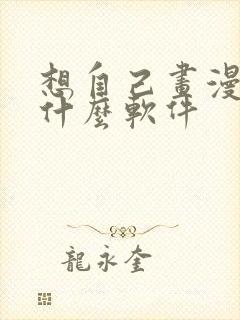 想自己畫漫
什麼軟件
龍永奎